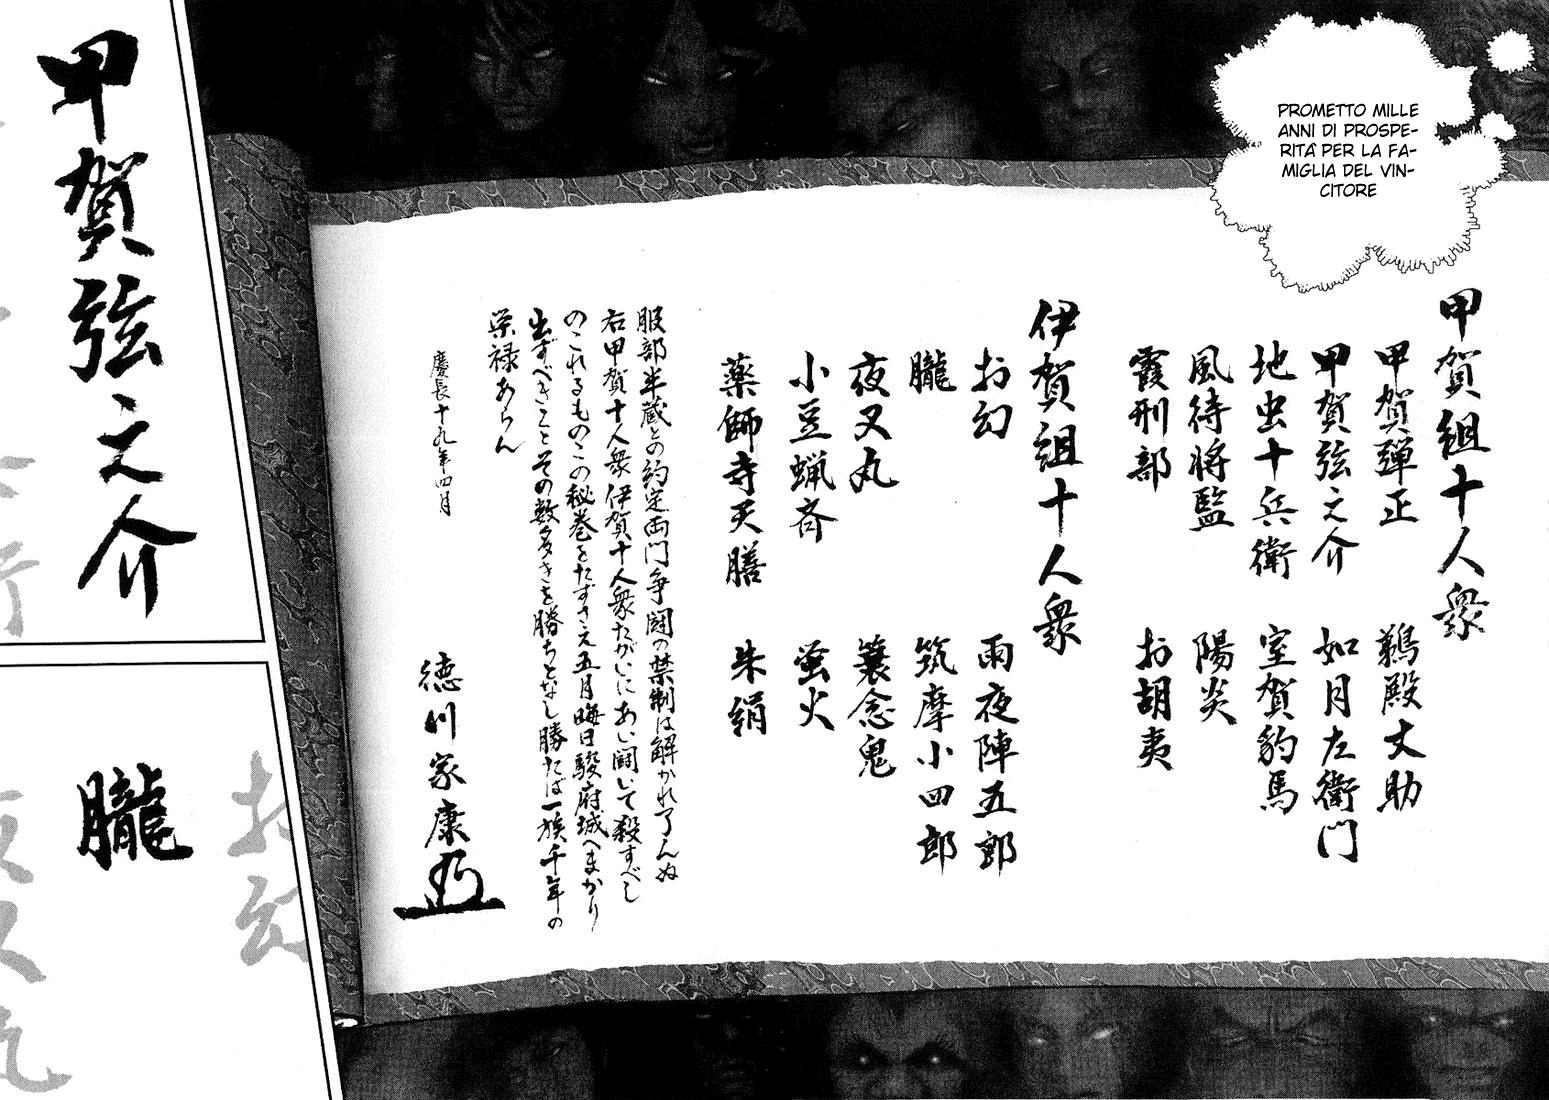 PROMETTO MILLE
ANNI DI PROSPE-
RITÀ PER LA FA-
MIGLIA DEL VIN-
CITORE
甲賀組十人衆
甲賀弾正
鵜殿丈助
甲賀弦之介
如月左衛門
地虫十兵衛
室賀豹馬
風待将監
陽炎
霞刑部
お胡夷
伊賀組十人衆
お幻
雨夜陣五郎
朧
筑摩小四郎
夜叉丸
蓑念鬼
小豆蝋斉
蛍火
薬師寺天膳
朱絹
服部半蔵との約定両門争闘の禁制は解かれ了んぬ
右甲賀十人衆伊賀十人衆たがいにあい闘いて殺すべし
のこれるものこの秘巻をたずさえ五月晦日駿府城へまかり
出ずべきことその数多きを勝ちとなし勝たば一族千年の
栄禄あらん
慶長十九年四月
徳川家康
甲賀弦之介
朧
お幻